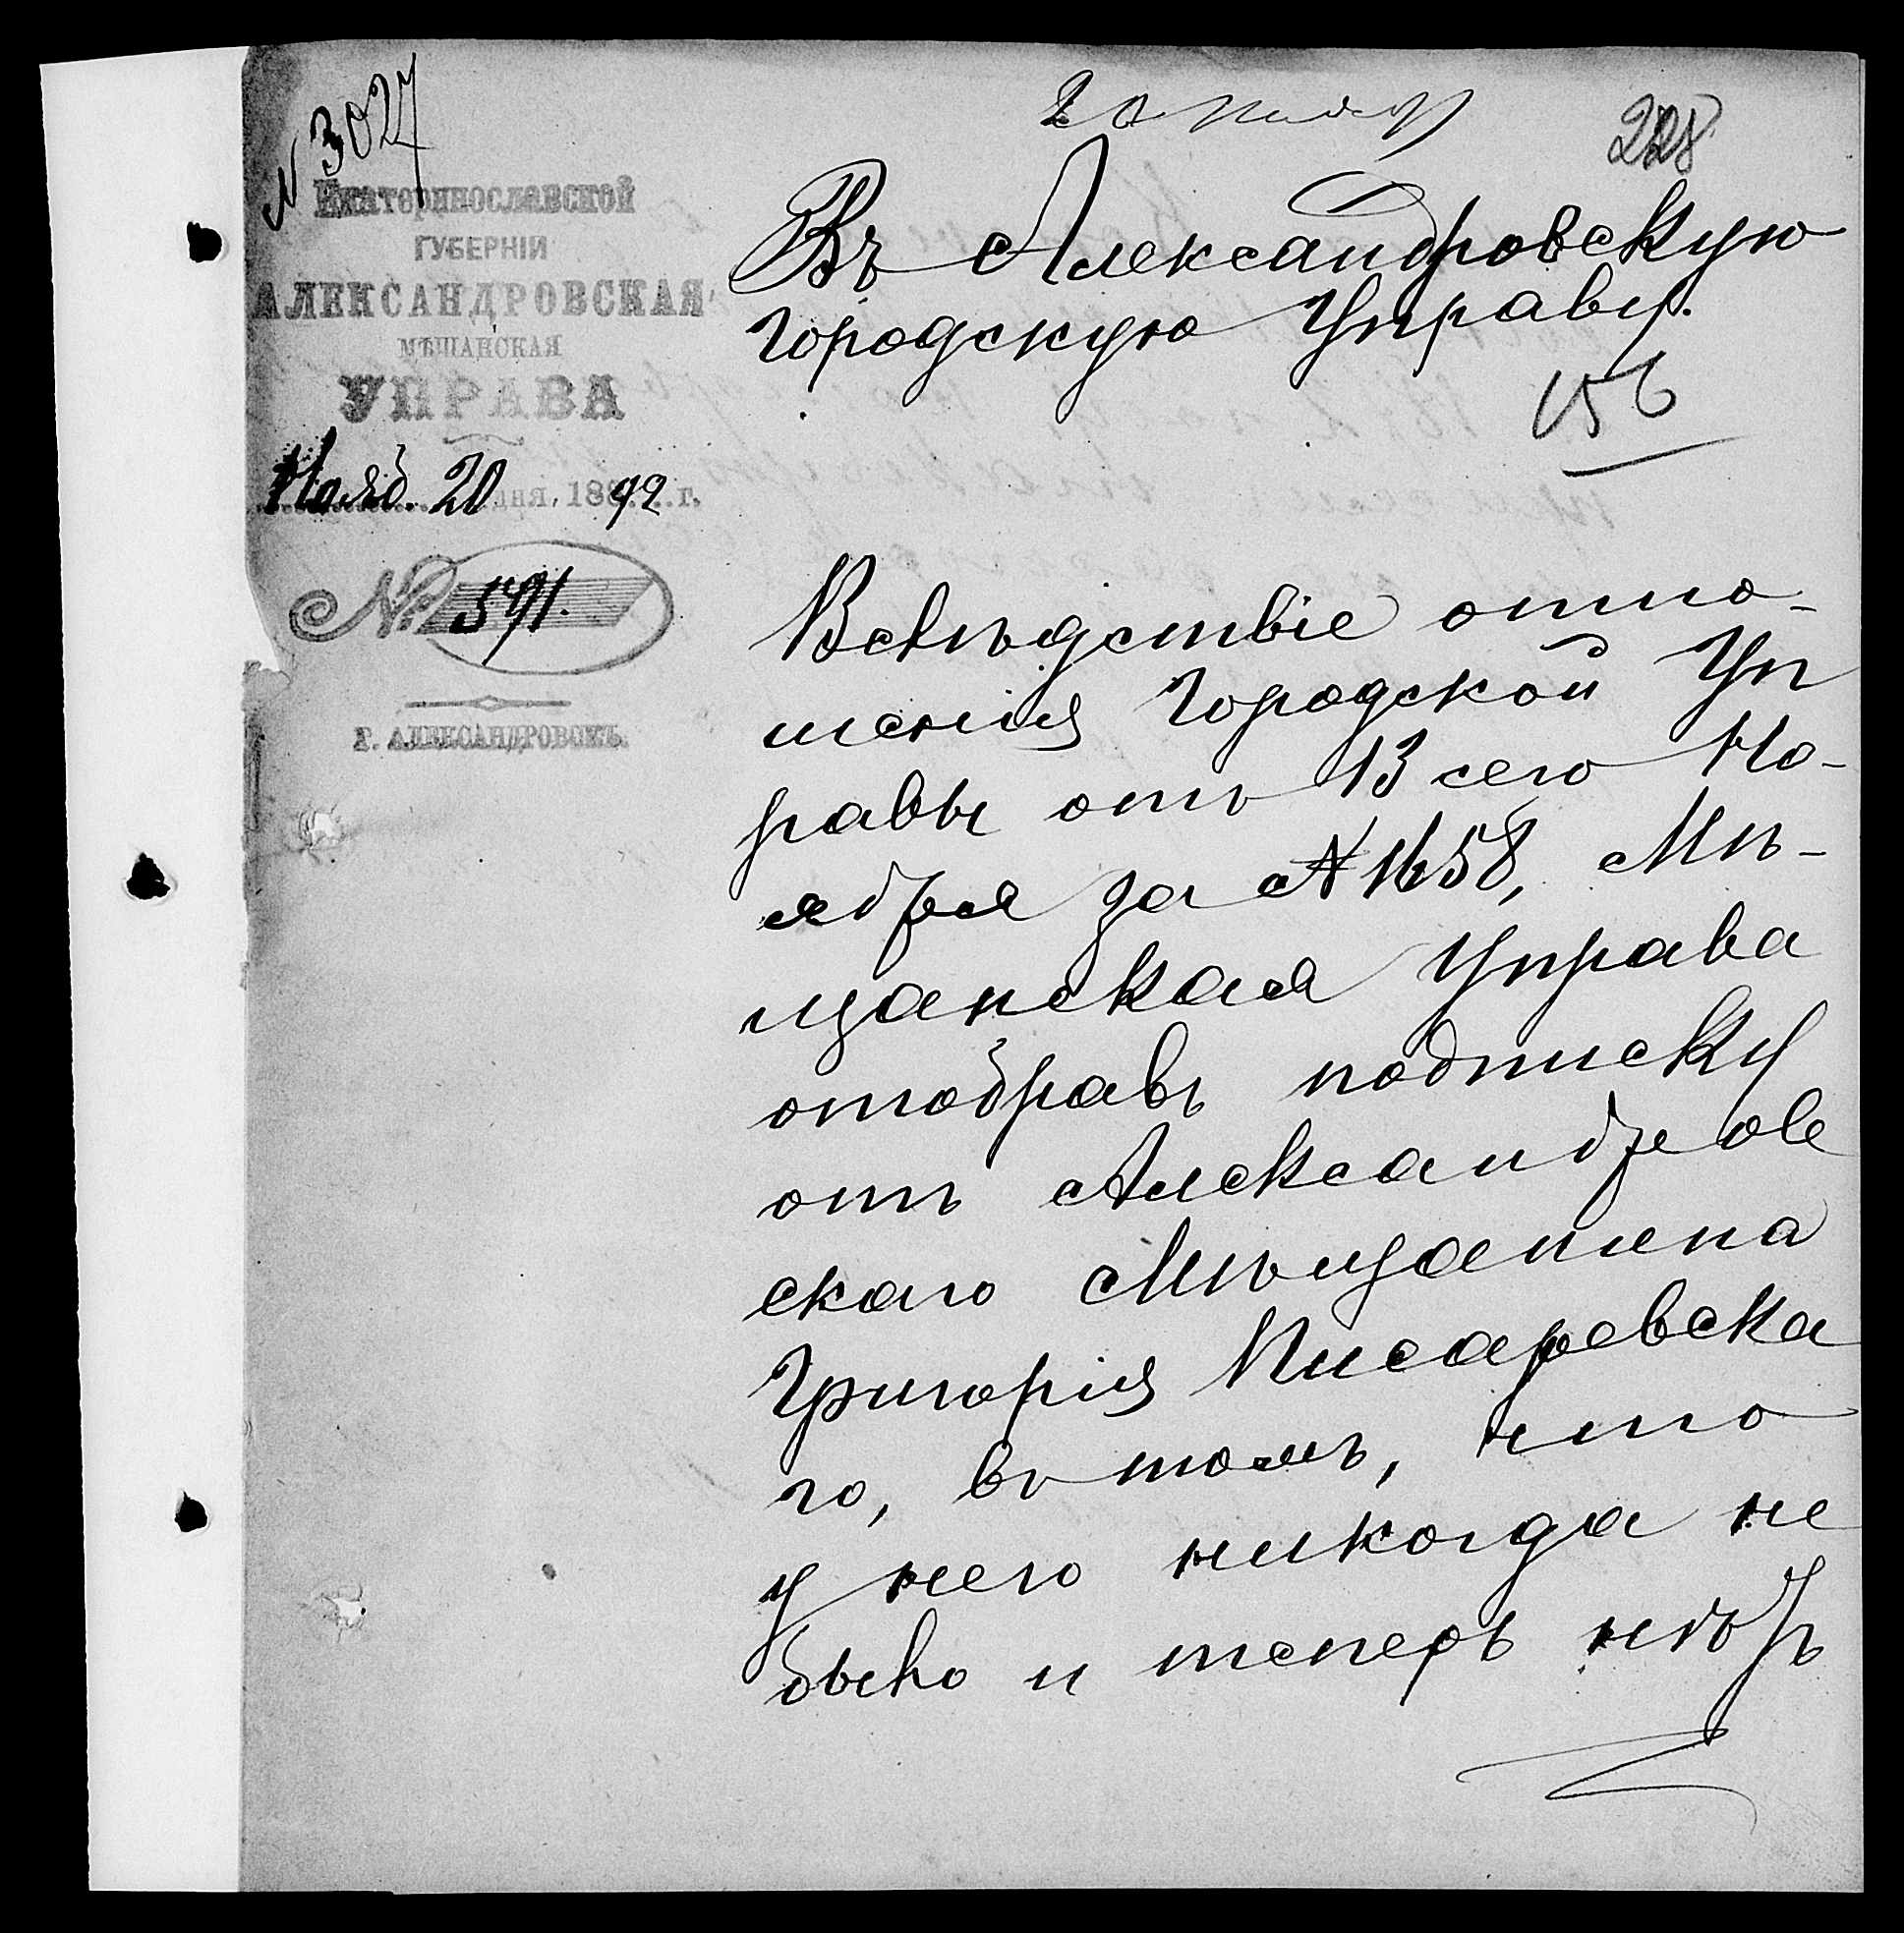 № 3027
20 нояб
228
Екатеринославской
ГУБЕРНІИ
АЛЕКСАНДРОВСКАЯ
МѢЩАНСКАЯ
УПРАВА
Нояб. 20 дня, 188 92 г.
№ 591.
Г. АЛЕКСАНДРОВСКЪ.
Въ Александровскую
Городскую Управу.
156
Вслѣдствіе отно-
шенія Городской Уп
равы отъ 13 сего Но-
ября за № 1658, Мѣ-
щанская Управа
отобравъ подписку
отъ Александров
скаго Мѣщанина
Григорія Писаревска
го, въ томъ, что
у него никогда не
было и теперь нѣтъ